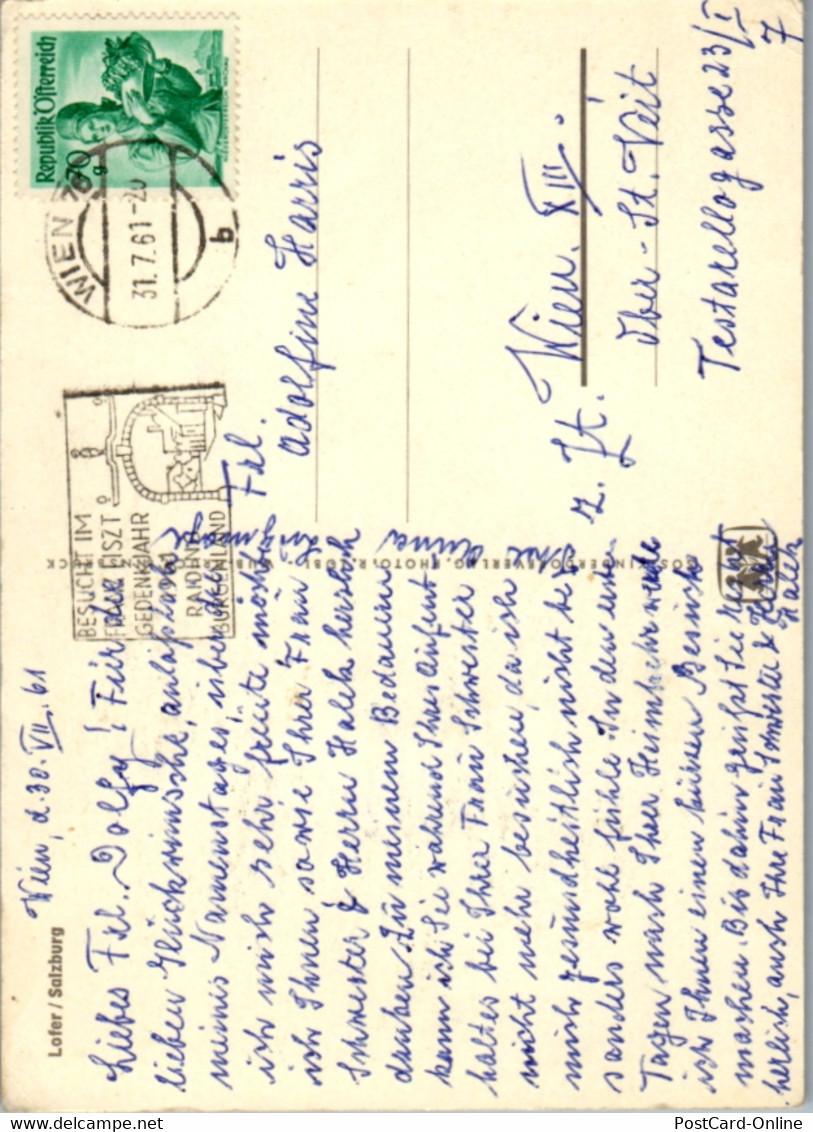 Lofer / Salzburg
Wien, d. 30. VII. 61
Liebes Frl. Dolfy! Für die
lieben Glückwünsche, anlässlich
meines Namenstages, über die
ich mich sehr freute möchte
ich Ihnen sowie Ihrer Frau
Schwester & Herrn Halek herzlich
danken. Zu meinem Bedauern
kann ich Sie während Ihres Aufent
haltes bei Ihrer Frau Schwester
nicht mehr besuchen, da ich
mich gesundheitlich nicht be
sonders wohl fühle. In den ersten
Tagen nach Ihrer Heimkehr werde
ich Ihnen einen kurzen Besuch
machen. Bis dahin grüßt Sie recht
herzlich, auch Ihre Frau Schwester & Herrn
Halek
Ihre
Republik Österreich
70 g
WIEN
31.7.61-20
b
BESUCHT IM
FRANZ LISZT
GEDENKJAHR
1961
RAIDING
BURGENLAND
Frl.
Adolfine Harris
z. Zt. Wien. XIII.
Ober-St. Veit
Testarellogasse 23/I
7
PostCard-Online